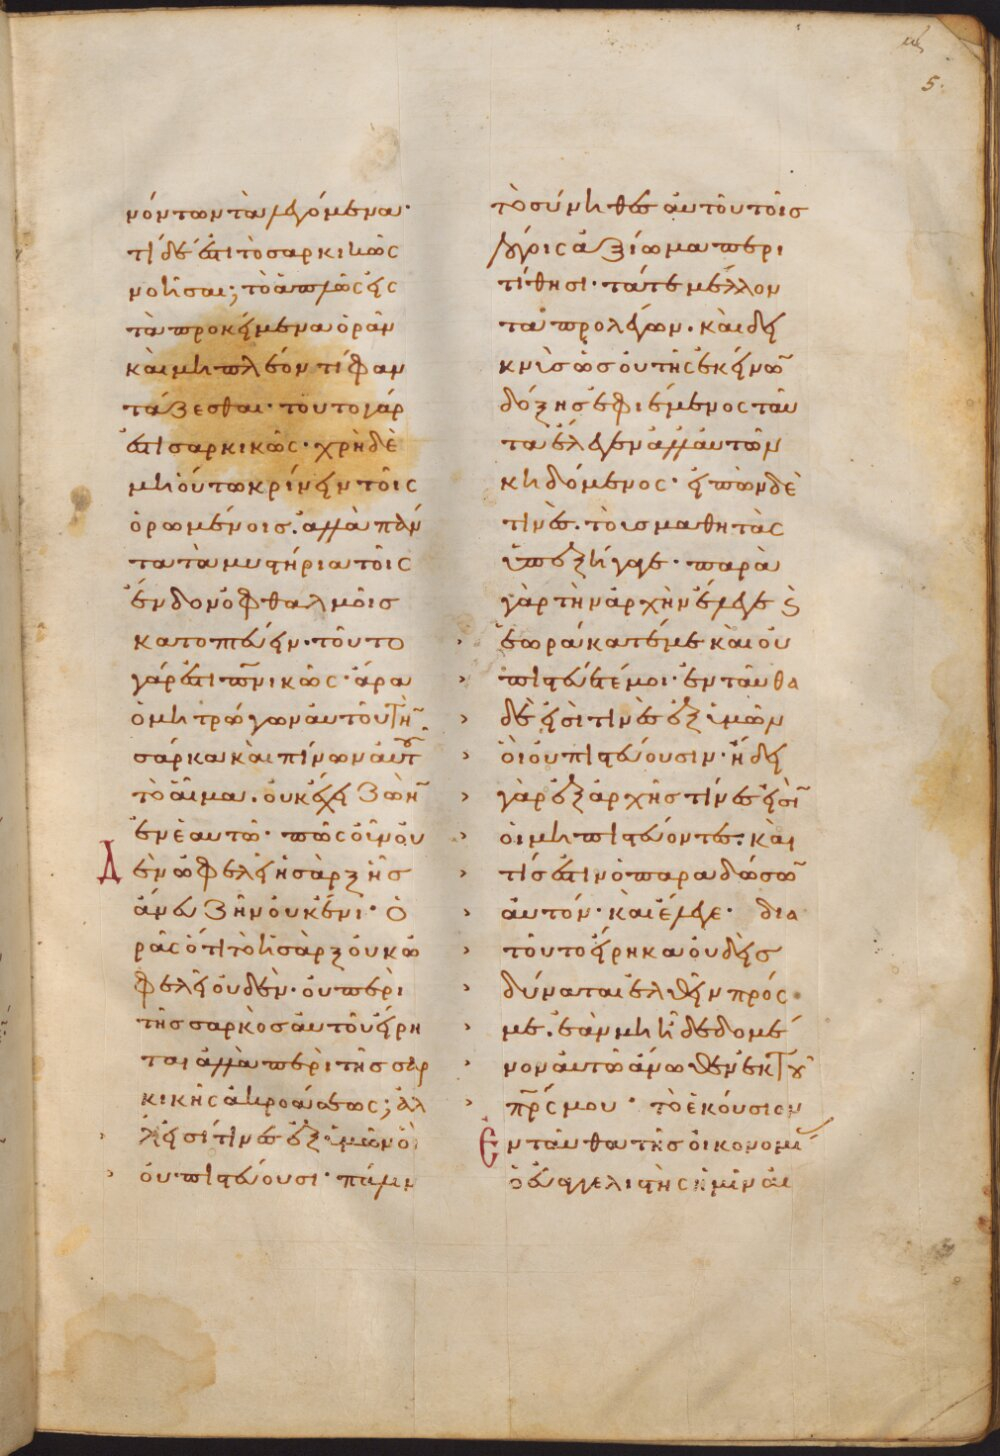 5.
νόντων τὰ λεγόμενα·
τί δέ ἐστι τὸ σαρκικῶς
νοῆσαι; τὸ ἁπλῶς εἰς
τὰ προκείμενα ὁρᾶν
καὶ μὴ πλέον τί φαν
τάζεσθαι· τοῦτο γάρ
ἐστι σαρκικῶς· χρὴ δὲ
μὴ οὕτω κρίνειν τοῖς
ὁρωμένοις· ἀλλὰ πάν
τα τὰ μυστήρια τοῖς
ἔνδον ὀφθαλμοῖς
κατοπτεύειν· τοῦτο
γάρ ἐστι πνικῶς· ἄρα
ὁ μὴ τρώγων αὐτοῦ τὴ
σάρκα καὶ πίνων αὐτ
τὸ αἷμα· οὐκ ἔχει ζωὴ
ἐν ἑαυτῶ· πῶς οὖν οὐ
δὲν ὠφελεῖ ἡ σὰρξ ἧς
ἄνευ ζῆν οὐκ ἔνι· ὁ
ρᾶς ὅτι τὸ ἡ σὰρξ οὐκ ὠ
φελεῖ οὐδὲν· οὐ περὶ
τῆς σαρκὸς αὐτοῦ εἴρη
ται ἀλλὰ περὶ τῆς σαρ
κικῆς ἀκροάσεως; ἀλ
λ' εἰσί τινες ἐξ ὑμῶν οἳ
οὐ πιστεύουσι· πάλιν
τὸ σύνηθες αὐτοῦ τοῖς
λόγοις ἀξίωμα περι
τίθησι· τά τε μέλλον
τα προλέγων· καὶ δει
κνὺς ὡς οὐ τῆς ἐκείνω
δόξης ἐφιέμενος ταῦ
τα ἔλεγεν ἀλλ' αὐτῶν
κηδόμενος· εἰπὼν δὲ
τινές· τοὺς μαθητὰς
ὑπεξήγαγε· παρὰ
γὰρ τὴν ἀρχὴν ἔλεγε ὅ
ἑωράκατέ με καὶ οὐ
πιστεύετέ μοι· ἐνταῦθα
δὲ εἰσὶ τινὲς ἐξ ὑμῶν
οἳ οὐ πιστεύουσιν· ἤδει
γὰρ ἐξ ἀρχῆς τίνες εἰσὶ
οἱ μὴ πιστεύοντες· καὶ
τίς ἐστιν ὁ παραδώσω
αὐτόν· καὶ ἔλεγε· δια
τοῦτο εἴρηκα οὐδεὶς
δύναται ἐλθεῖν πρός
με· ἐὰν μὴ ἦ δεδομέ
νον αὐτῶ ἄνωθεν ἐκ τοῦ
πρς μου· τὸ ἑκούσιον
ἐνταῦθα τῆς οἰκονομί
ὁ εὐαγγελιστὴς ἡμῖν αἰ